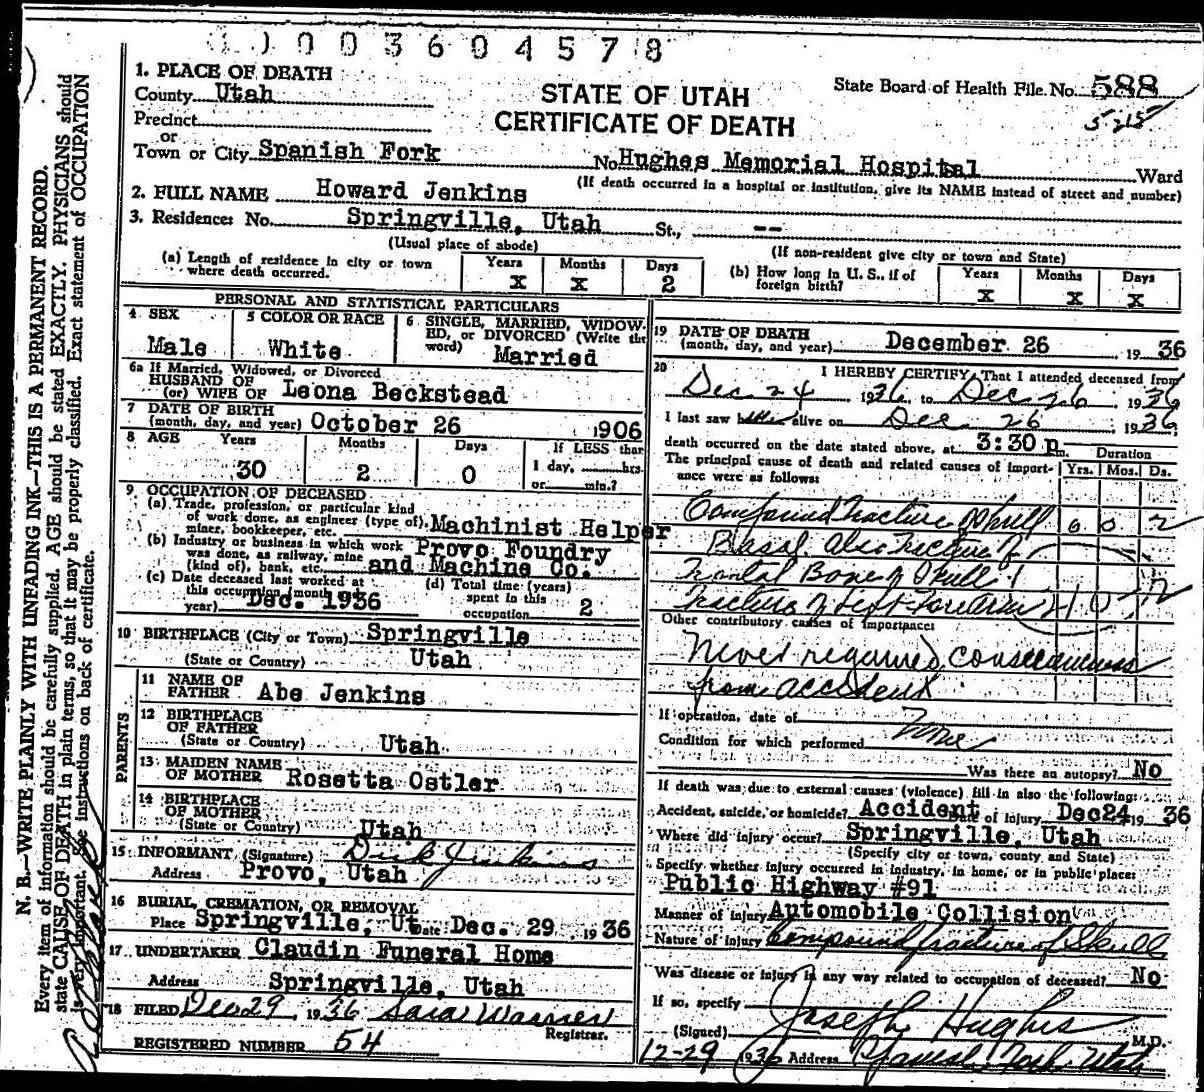 1003604578
1. PLACE OF DEATH
County Utah
STATE OF UTAH
State Board of Health File No. 588
Precinct
CERTIFICATE OF DEATH
5-215
or
Town or City Spanish Fork No Hughes Memorial Hospital Ward
(If death occurred in a hospital or institution, give its NAME instead of street and number)
2. FULL NAME Howard Jenkins
3. Residence: No. Springville, Utah St., --
(Usual place of abode) (If non-resident give city or town and State)
(a) Length of residence in city or town where death occurred. Years X Months X Days 2
(b) How long in U. S., if of foreign birth? Years X Months X Days X
PERSONAL AND STATISTICAL PARTICULARS
4 SEX Male
5 COLOR OR RACE White
6 SINGLE, MARRIED, WIDOWED, or DIVORCED (Write the word) Married
6a If Married, Widowed, or Divorced
HUSBAND OF
(or) WIFE OF Leona Beckstead
7 DATE OF BIRTH
(month, day, and year) October 26 1906
8 AGE Years 30 Months 2 Days 0 If LESS than 1 day, hrs. or min.?
9 OCCUPATION OF DECEASED
(a) Trade, profession, or particular kind
of work done, as engineer (type of), Machinist Helper
miner, bookkeeper, etc.
(b) Industry or business in which work Provo Foundry
was done, as railway, mine
(kind of), bank, etc. and Machine Co.
(c) Date deceased last worked at this occupation (month and year) Dec. 1936
(d) Total time (years) spent in this occupation 2
10 BIRTHPLACE (City or Town) Springville
(State or Country) Utah
PARENTS
11 NAME OF
FATHER Abe Jenkins
12 BIRTHPLACE
OF FATHER
(State or Country) Utah
13 MAIDEN NAME
OF MOTHER Rosetta Ostler
14 BIRTHPLACE
OF MOTHER
(State or Country) Utah
15 INFORMANT (Signature) Dick Jenkins
Address Provo, Utah
16 BURIAL, CREMATION, OR REMOVAL
Place Springville, Ut Date Dec. 29 1936
17 UNDERTAKER Claudin Funeral Home
Address Springville, Utah
18 FILED Dec 29, 1936 Sara Warner
Registrar.
REGISTERED NUMBER 54
19 DATE OF DEATH
(month, day, and year) December 26 1936
20 I HEREBY CERTIFY, That I attended deceased from
Dec 24 1936 to Dec 26 1936
I last saw alive on Dec 26 1936
death occurred on the date stated above, at 3:30 p m.
Duration
The principal cause of death and related causes of importance were as follows:
Yrs. Mos. Ds.
Compound Fracture of Skull 0 0 2
Basal also Fracture of
Frontal Bone of Skull
Fracture of Left Forearm
Other contributory causes of importance:
Never regained consciousness
from accident
If operation, date of None
Condition for which performed
Was there an autopsy? No
If death was due to external causes (violence) fill in also the following:
Accident, suicide, or homicide? Accident Date of injury Dec 24 1936
Where did injury occur? Springville, Utah
(Specify city or town, county and State)
Specify whether injury occurred in industry, in home, or in public place:
Public Highway #91
Manner of injury Automobile Collision
Nature of injury Compound fracture of Skull
Was disease or injury in any way related to occupation of deceased? No
If so, specify
(Signed) Joseph Hughes M.D.
12-29 1936 Address Spanish Fork Utah
N. B.—WRITE PLAINLY WITH UNFADING INK—THIS IS A PERMANENT RECORD.
Every item of information should be carefully supplied. AGE should be stated EXACTLY. PHYSICIANS should
state CAUSE OF DEATH in plain terms, so that it may be properly classified. Exact statement of OCCUPATION
is very important. See instructions on back of certificate.